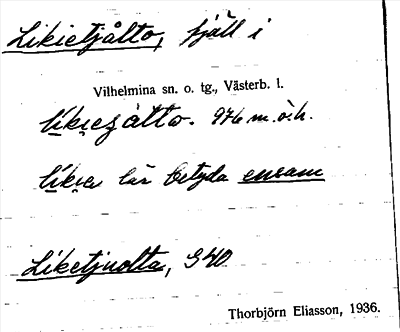 Likietjålto, fjäll i
Vilhelmina sn. o. tg., Västerb. l.
976 m.ö.h.
lär betyda ensam
Liketjuolta, G40
Thorbjörn Eliasson, 1936.